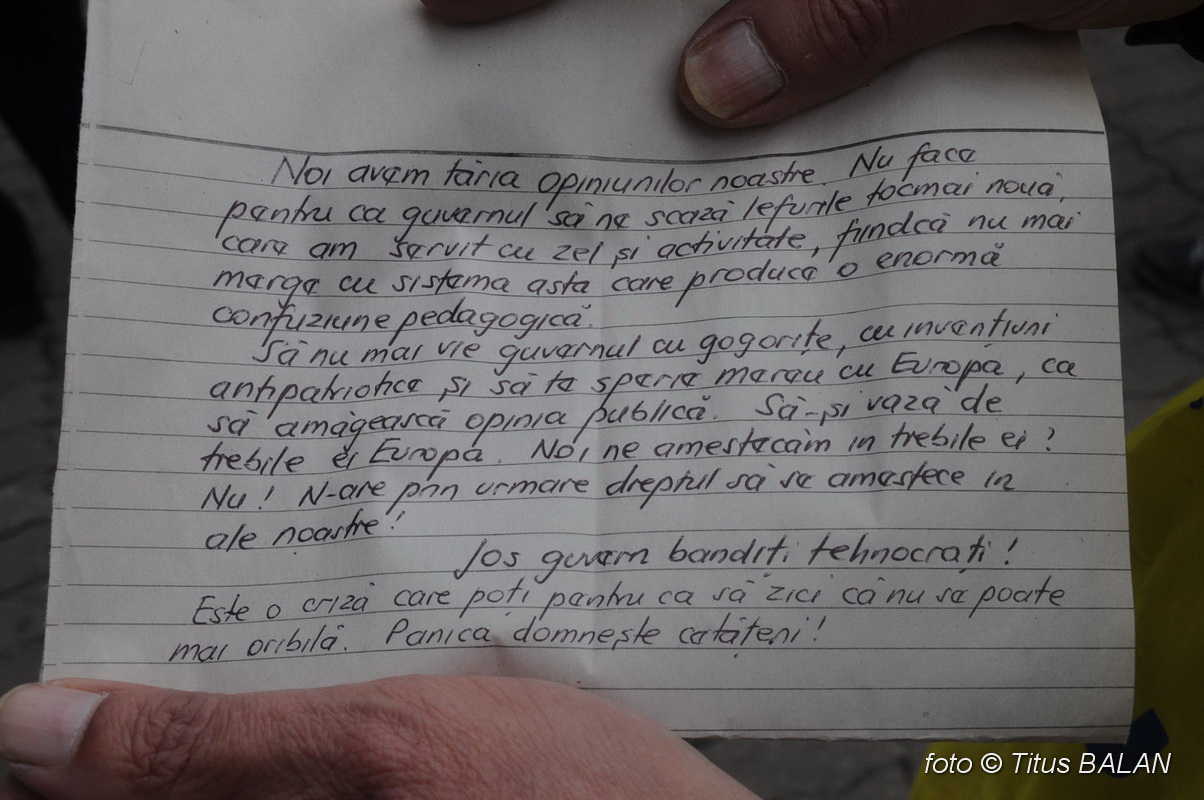 Noi avem tăria opiniunilor noastre. Nu face
pentru ca guvernul să ne scază lefurile tocmai nouă,
care am servit cu zel și activitate, fiindcă nu mai
merge cu sistema asta care produce o enormă
confuziune pedagogică.
Să nu mai vie guvernul cu gogorițe, cu invențiuni
antipatriotice și să te sperie mereu cu Europa, ca
să amăgească opinia publică. Să-și vază de
trebile ei Europa. Noi ne amestecăm in trebile ei?
Nu! N-are prin urmare dreptul să se amestece in
ale noastre!
Jos guvern bandiți tehnocrați!
Este o criză care poți pentru ca să zici că nu se poate
mai oribilă. Panica domnește cetățeni!
foto © Titus BALAN